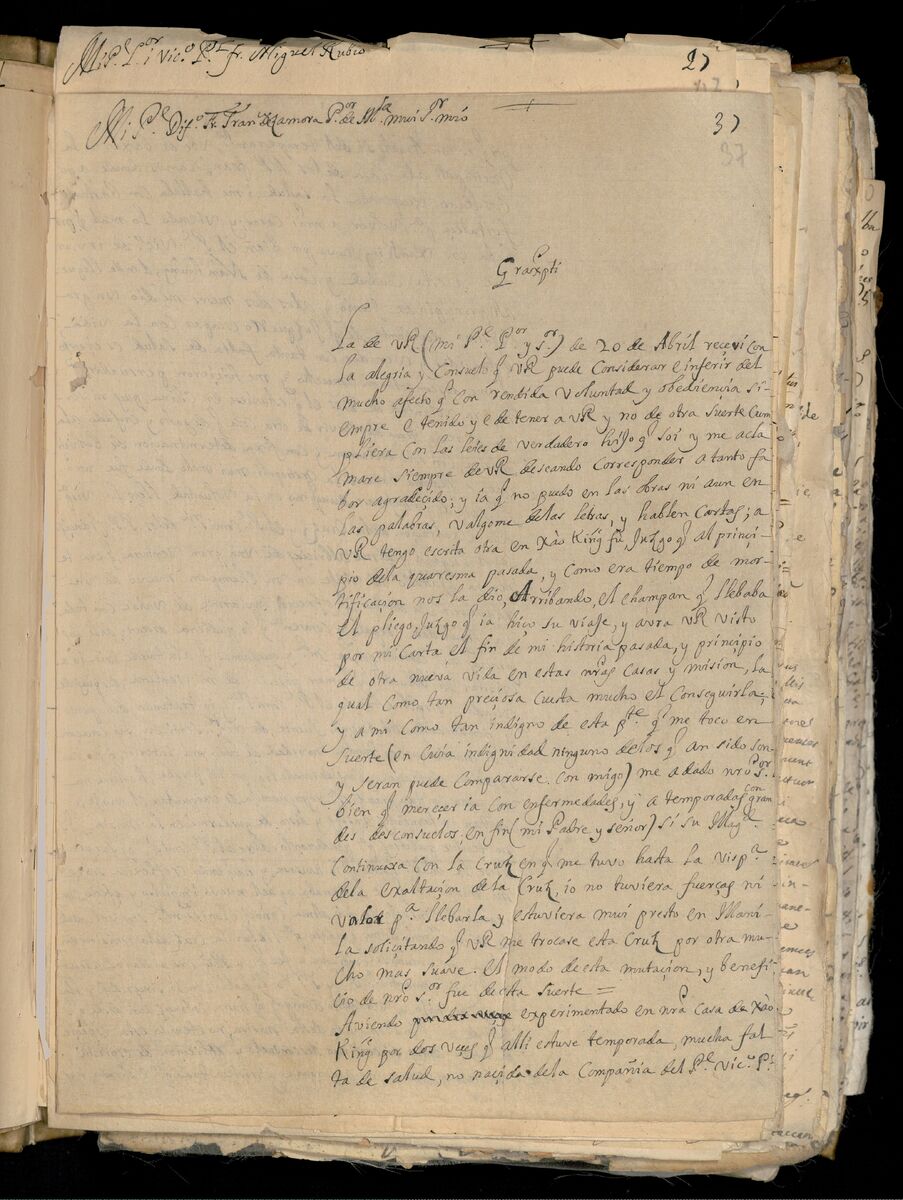 Mi Pe. Por. i Vico. Pl. fr. Miguel Rubio
27
Mi Pe. Difo. Fr. Franco. de Zamora Por. de Mla. mui sr. mio
37
37
Gra Xpti
La de VR (mi Pe. Por. y sr.) de 20 de Abril receví con
la alegria y Consuelo q̃ VR puede Considerar e inferir del
mucho afecto q̃ con rendida voluntad y obediençia si-
empre e tenido y e de tener a VR y no de otra suerte Cum
pliera Con las leies de verdadero hijo q̃ soi y me acla
mare siempre de VR deseando Corresponder a tanto fa
bor agradeçido; y ia q̃ no puedo en las obras ni aun en
las palabras, valgome delas letras, y hablen Cartas; a
VR tengo escrita otra en Xào Kiñg fù, Juzgo q̃ al prinçi-
pio dela quaresma pasada, y como era tiempo de mor-
tificaçion nos la dio, Arribando, el champan q̃ llebaba
el pliego, Juzgo q̃ ia hiço su viaje, y avra VR visto
por mi Carta el fin de mi historia pasada, y prinçipio
de otra nueva vida en estas nras Casas y mision, la
qual como tan preçiosa Cuesta mucho el Conseguirla;
y a mi Como tan indigno de esta pte. q̃ me toco en
suerte (en Cuia indignidad ninguno delos q̃ an sido son
y seran puede Compararse con migo) me a dado nro Sor.
bien q̃ mereçer ia con enfermedades, y a temporadas con gran
des desconsuelos; en fin (mi Padre y señor) si su Magd.
Continuara con la Cruz en q̃ me tuvo hasta la vispa.
dela exaltaçion de la Cruz, io no tuviera fuerças ni
valor pa. llebarla, y estuviera mui presto en Mani-
la soliçitando q̃ VR me trocase esta Cruz por otra mu-
cho mas suave. el modo de esta mutaçion, y benefi-
çio de nro sor. fue de esta suerte =
Aviendo experimentado en nra Casa de Xào
Kiñg por dos veçes q̃ alli estuve temporada, mucha fal
ta de salud, no naçida dela Compañia del Pe. Vico. Pl.